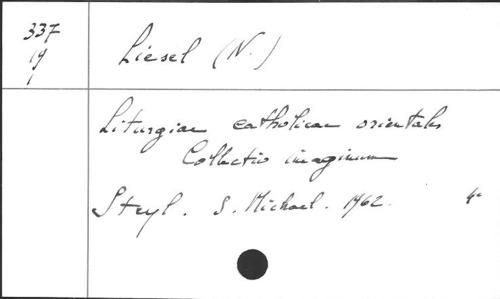 337
19
1
Liesel (N.)
Liturgiae catholicae orientales
Collectio imaginum
Steyl. S. Michael. 1962. 4°